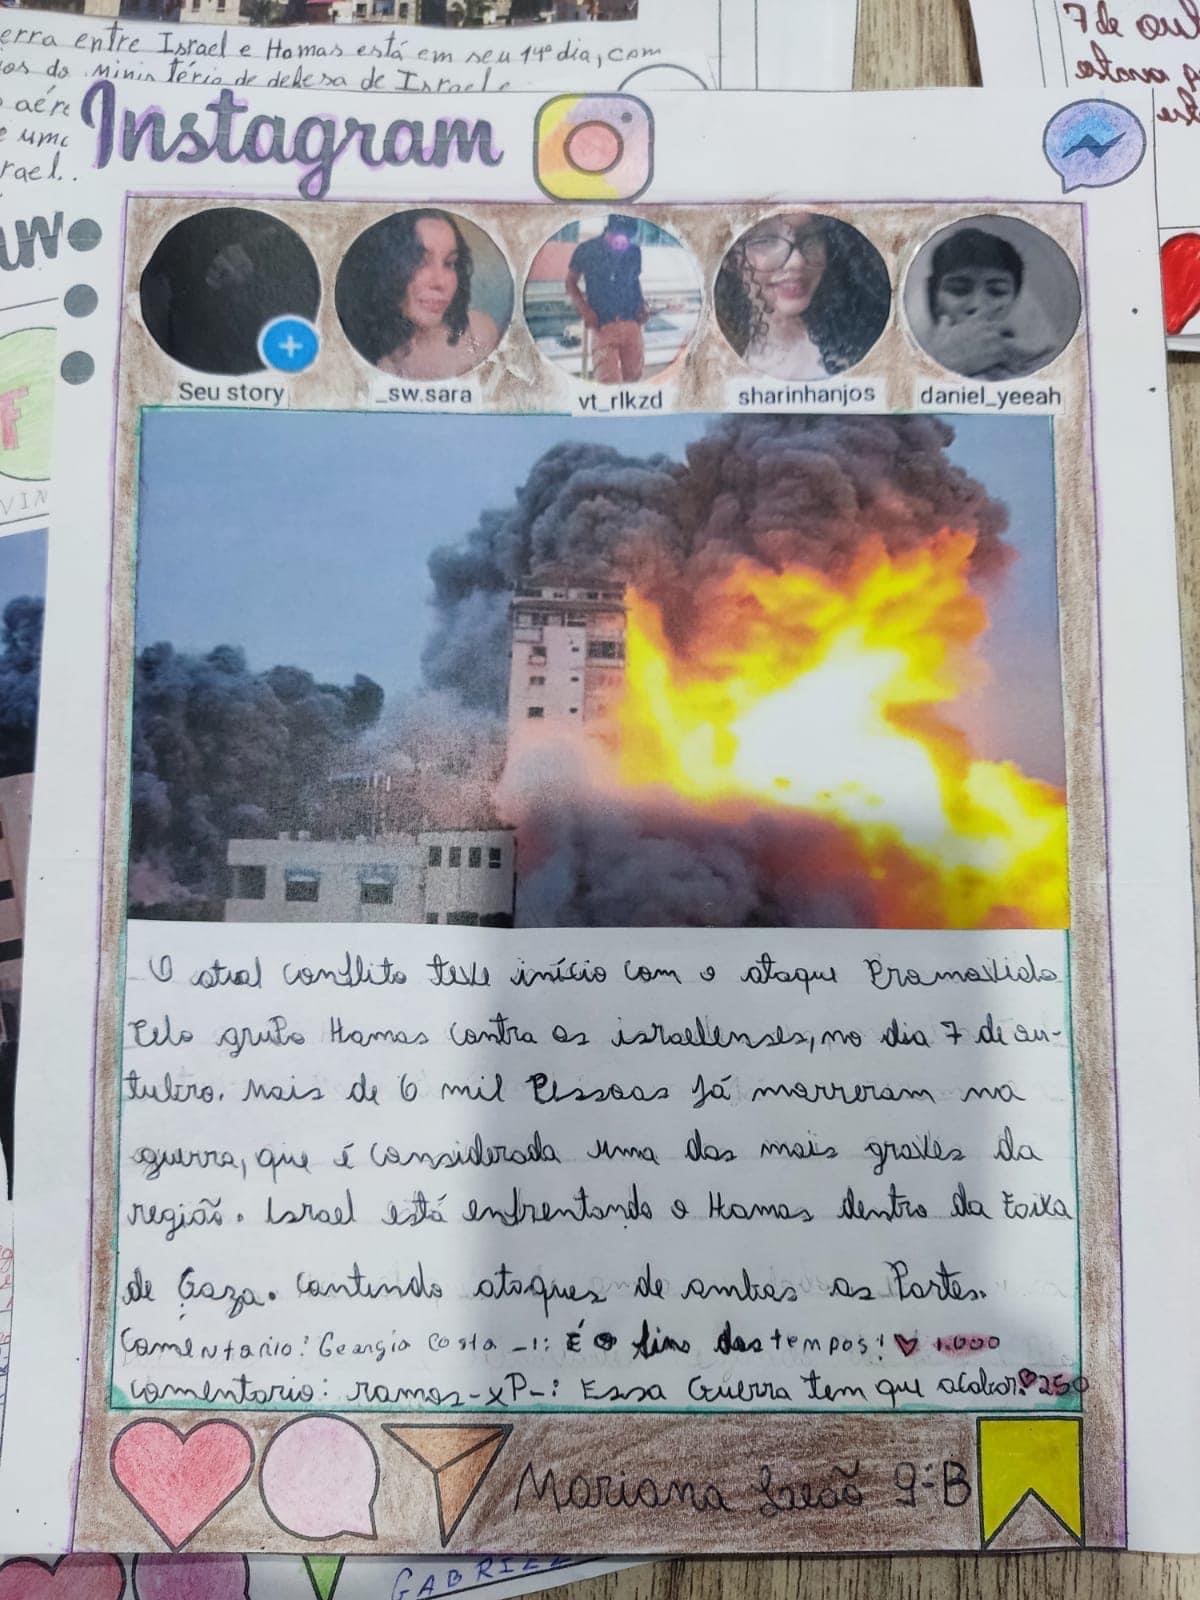 erra entre Israel e Hamas está em seu 14º dia, com
ios do Ministério de defesa de Israel
aére
e uma
rael.
7 de
estava
Instagram
Seu story
_sw.sara
vt_rlkzd
sharinhanjos
daniel_yeeah
VIN
O atual conflito teve início com o ataque Promovido
Pelo grupo Hamas contra os israelenses, no dia 7 de ou-
tubro. Mais de 6 mil Pessoas já morreram na
guerra, que é considerada uma das mais graves da
região. Israel está enfrentando o Hamas dentro da Faixa
de Gaza. Contendo ataques de ambas as Partes.
Comentario: Georgia costa -1: É o fim dos tempos! 1.000
comentario: ramos-xP-: Essa Guerra tem que acabar! 250
Mariana Leão 9:B
GABRIEL